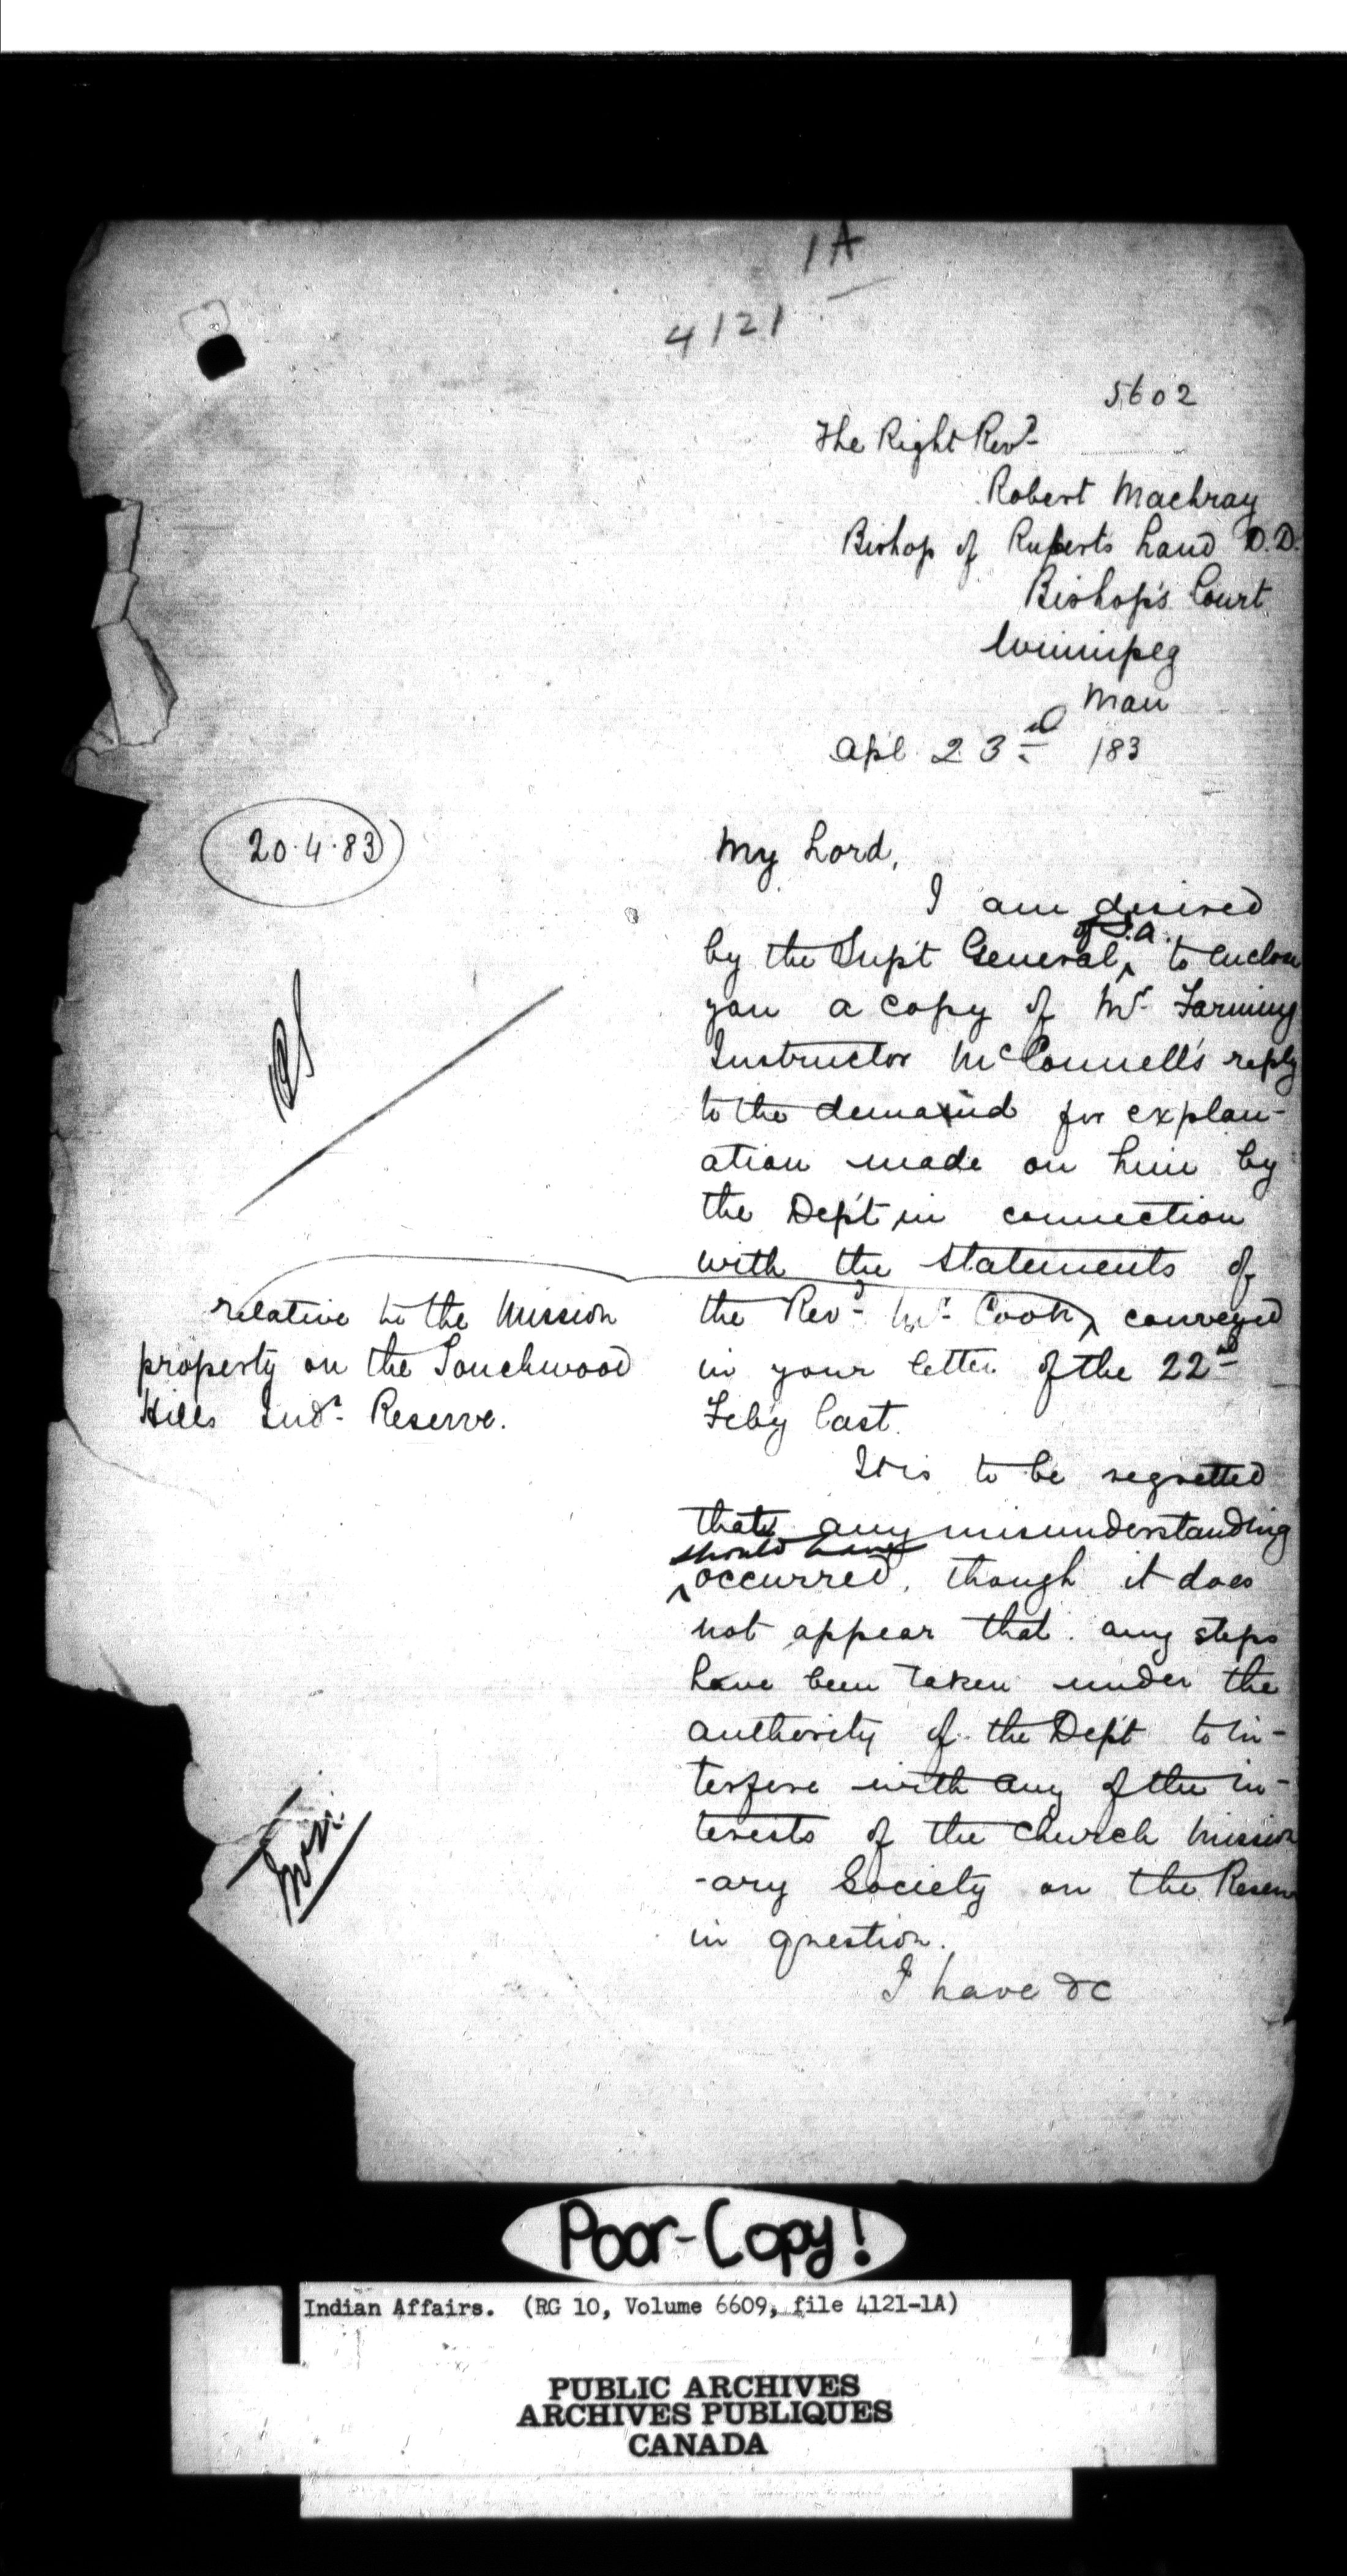 1A
4121
5602
The Right Revd
Robert Machray
Bishop of Ruperts Land D.D.
Bishop's Court
Winnipeg
Man
Apl 23rd /83
20.4.83
My Lord,
I am desired
of I.A.
by the Supt General, to enclose
you a copy of Mr Farming
Instructor McConnell's reply
to the demand for explan-
ation made on him by
the Dep't, in connection
with the statements of
the Revd Mr Cook, conveyed
relative to the Mission
property on the Touchwood
Hills Indn Reserve.
in your letter of the 22nd
Feby last.
It is to be regretted
that any misunderstanding
should have
occurred, though it does
not appear that any steps
have been taken under the
authority of the Dep't to in-
terfere with any of the in-
terests of the Church Mission
-ary Society on the Reserve
in question.
I have &c
Poor-Copy!
Indian Affairs. (RG 10, Volume 6609, file 4121-1A)
PUBLIC ARCHIVES
ARCHIVES PUBLIQUES
CANADA